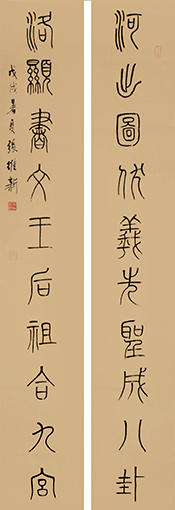 河出圖伏羲先聖成八卦
洛顯書文王后祖合九宮
戊戌暑夏張維新